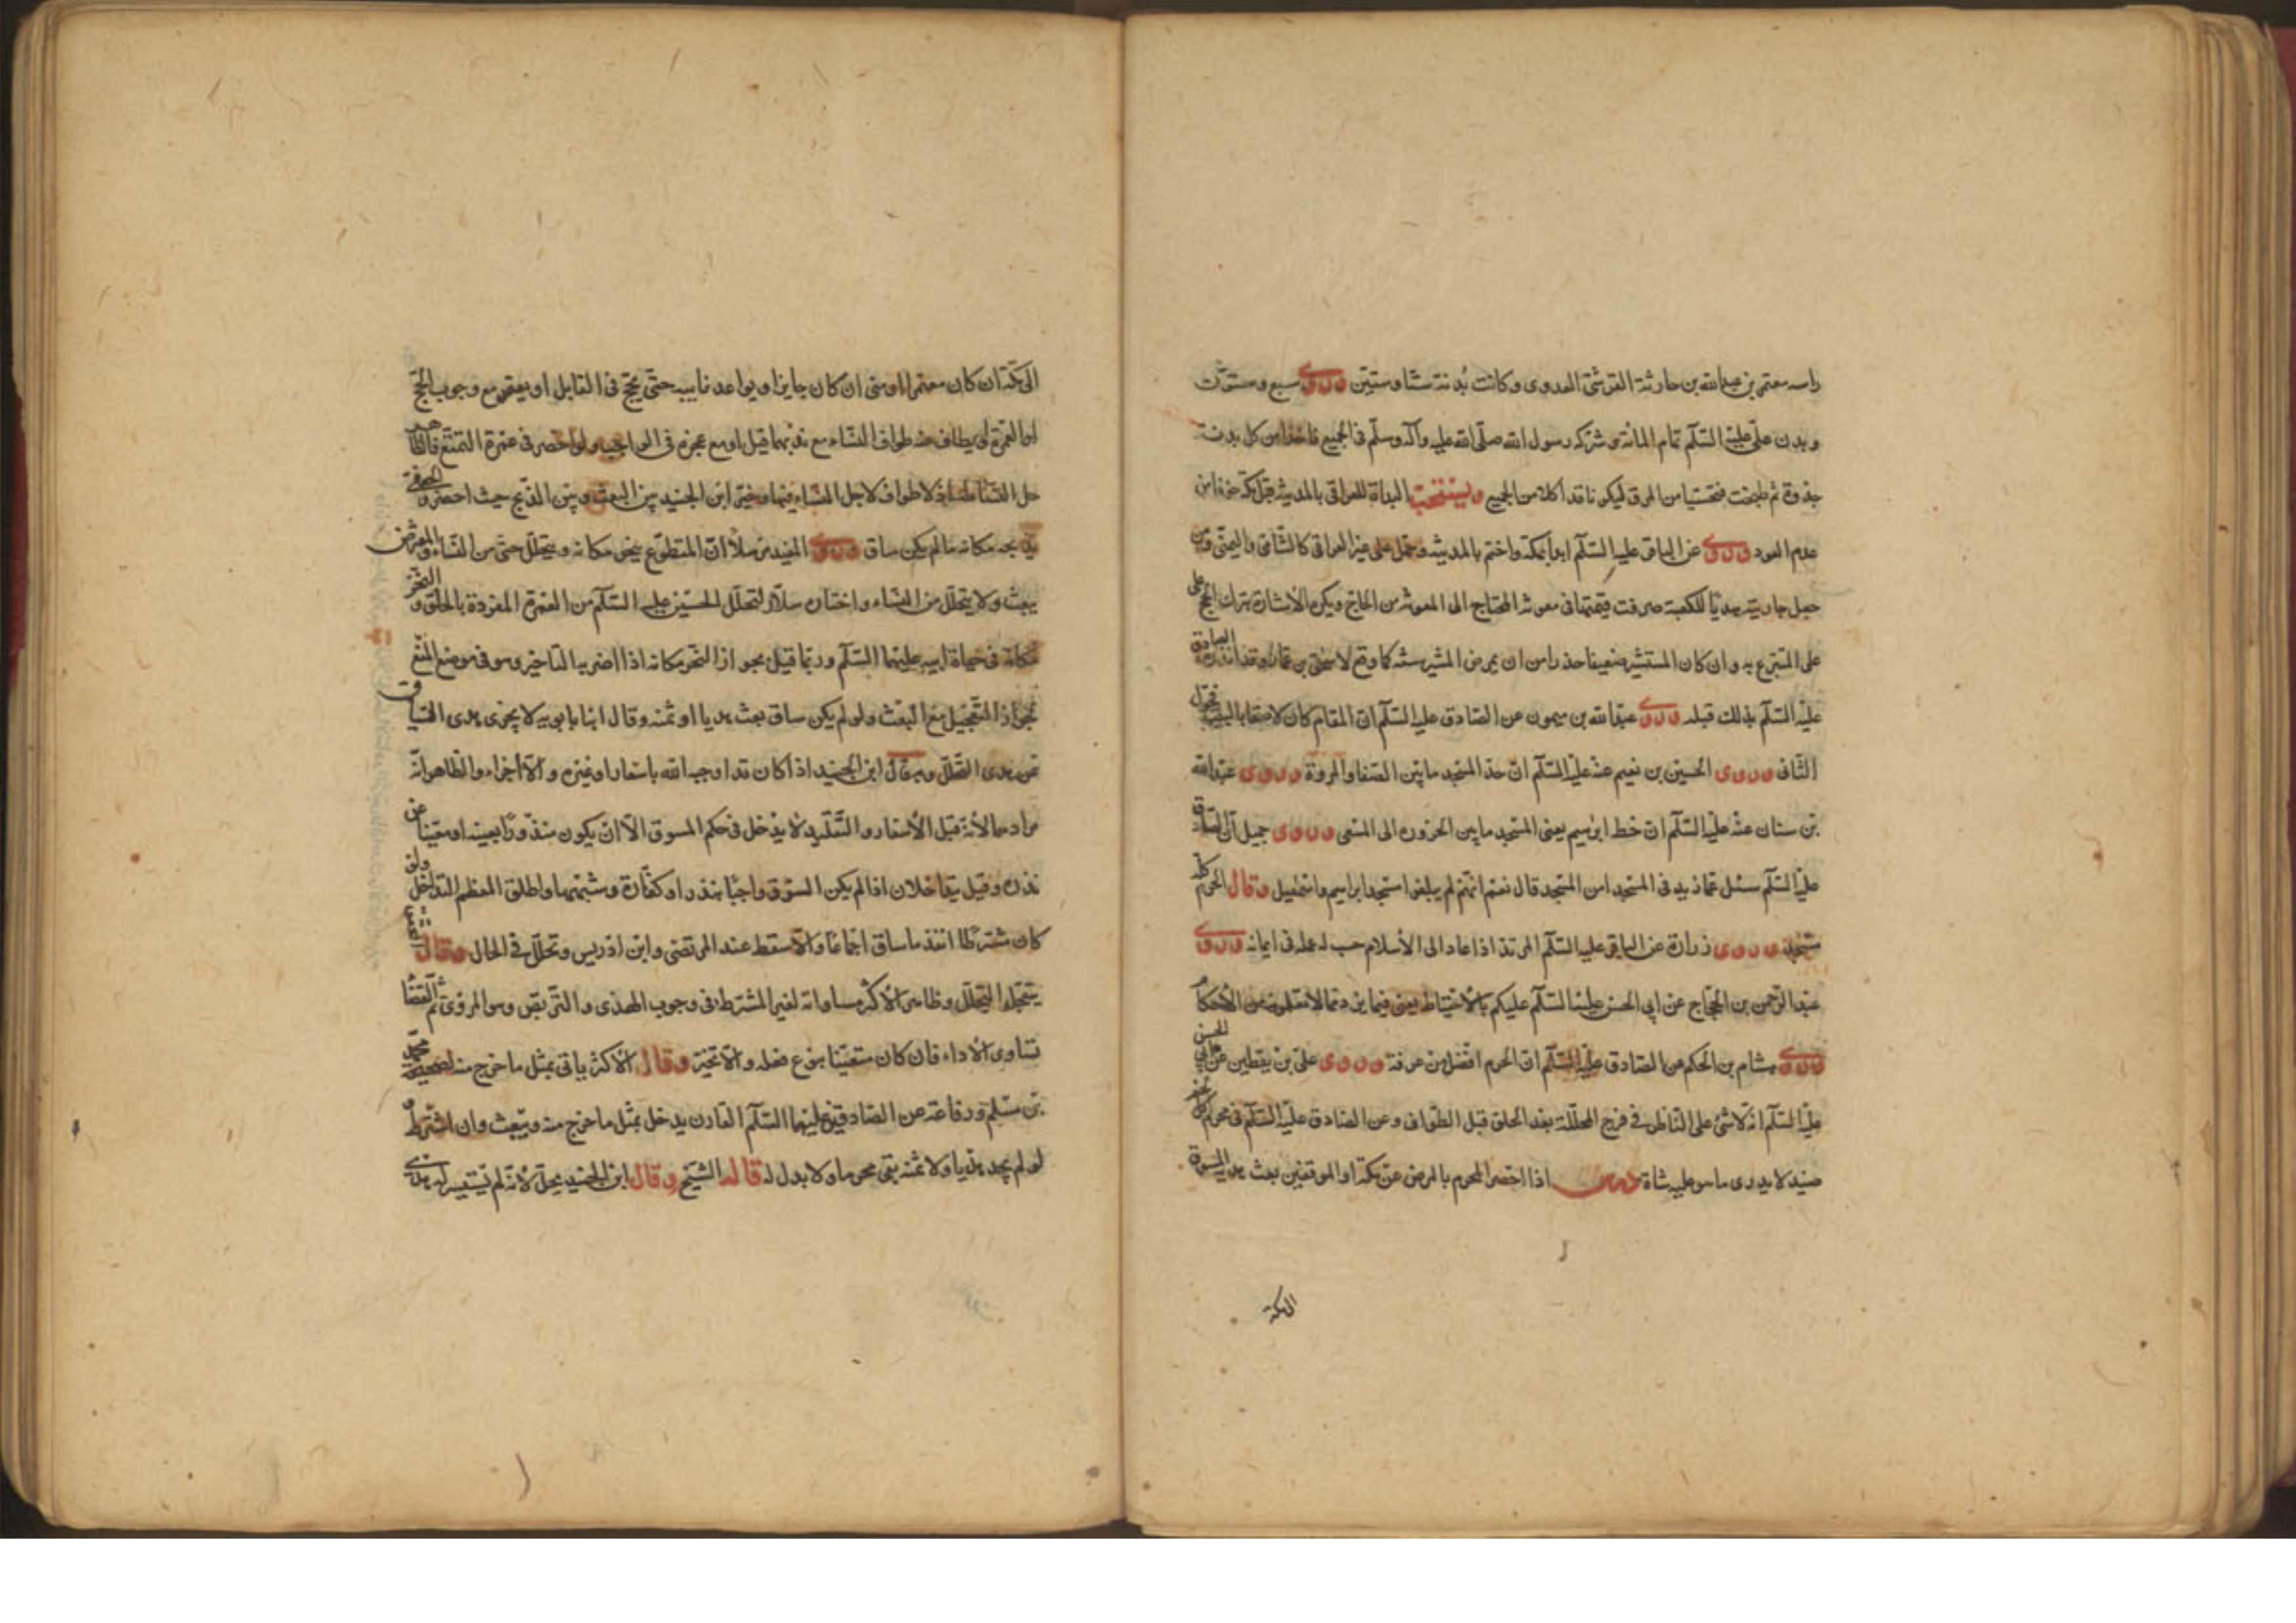 راسه معتمر بن عبدالله بن حارثة القرشی العدوی و کانت بُدنته ستّا و ستّین وروی سبع و ستون
و بدن علی علیه السّلم تمام المائة و شرّکه رسول الله صلّی الله علیه وآله وسلّم فی الجمیع فاخذا من کل بدنة
جذوة ثم طبخت فتحسّیا من المرق لیکونا قد اکلا من الجمیع ویستحب البدأة للعراقی بالمدینة قبل مکة خوفا من
عدم العود وروی عن الباقر علیه السّلم ابدأ بمکة و اختم بالمدینة و حمل علی غیر العراقی کالشّامی والیمنی ومن
جعل جاریته هدیًا للکعبة صرفت قیمتها فی معونة المحتاج الی المعونة من الحاج ویکره الأشارة بترک الحج علی
علی المتبرع به و ان کان المستشیر ضعیفا حذرا من ان یمرض المشیر سنة کما وقع لاسحٰق بن عمار وقد انذره الصادق
علیه السّلم بذلک قبله وروی عبدالله بن میمون عن الصّادق علیه السّلم انّ المقام کان لاصقا بالبیت فحوّله
الثّانی وروی الحسین بن نعیم عنه علیه السّلم انّ حدّ المسجد ما بین الصّفا و المروة وروی عبدالله
بن سنان عنه علیه السّلم انّ خط ابرهیم یعنی المسجد ما بین الحزورة الی المسعی وروی جمیل انّ الصّادق
علیه السّلم سئل عمّا زید فی المسجد امن المسجد قال نعم انّهم لم یبلغوا مسجد ابراهیم و اسمٰعیل وقال الحرم کلّه
مسجد وروی زرارة عن الباقر علیه السّلم المرتد اذا عاد الی الأسلام حسب له عمله فی ایمانه وروی
عبدالرّحمن بن الحجّاج عن ابی الحسن علیه السّلم علیکم بالأحتیاط یعنی فیما یرد ممّا لا تعلمونه من الأحکام
وروی هشام بن الحکم عن الصّادق علیه السّلم انّ الحرم افضل من عرفة وروی علی بن یقطین عن ابی الحسن
علیه السّلم انّه لا شیء علی النّاظر فی فرج المحلّلة بعد الحلق قبل الطّواف و عن الصّادق علیه السّلم فی محرم اخذ
صیده لا یدری ما هو علیه شاة درس اذا احصر المحرم بالمرض عن مکة او الموقفین بعث هدیه المسوق
الی مکة
الی مکّة ان کان معتمرا او منی ان کان حاجا و یواعد نایبه حتّی یحجّ فی القابل او یعتمر مع وجوب الحجّ
او العمرة او یطاف عنه طواف النّساء مع ندبهما قیل او مع عجزه فی الواجب ولو احصر فی عمرة التمتّع فالظّاهر
حل النّساء له اذ لا طواف لاجل النّساء فیها و خیّر ابن الجنید بین البعث و بین الذّبح حیث احصر و الجعفی
یذبحه مکانه ما لم یکن ساق وروی المفید مرسلاً انّ المتطوّع ینحر مکانه و یتحلّل حتّی من النّساء و المفترض
یبعث ولا یتحلّل من النّساء و اختاره سلّار لتحلّل الحسین علیه السّلم من العمرة المفردة بالحلق و النّحر
مکانه فی حیاة ابیه علیهما السّلم و ربّما قیل بجواز النّحر مکانه اذا اضر به التّاخیر و هو فی موضع المنع
لجواز التّعجیل مع البعث ولو لم یکن ساق بعث هدیا او ثمنه و قال ابنا بابویه لا یجزی هدی السّیاق
عن هدی التّحلّل و به قال ابن الجنید اذا کان قد اوجبه الله باشعار او غیره و الّا اجزاء و الظّاهر انّه
مرادهما لأنّه قبل الأشعار و التّقلید لا یدخل فی حکم المسوق الّا ان یکون منذورًا بعینه او معیّنا عن
نذره و قیل یتداخلان اذا لم یکن السّوق واجبًا بنذر او کفّارة و شبههما و اطلق المعظم التّداخل ولو
کان شترطا انفذ ما ساق اجماعًا و الّا سقط عند المرتضی و ابن ادریس و تحلّل فی الحال وقال
یتعجّل التّحلّل و ظاهر الأکثر مساواته لغیر المشترط فی وجوب الهدی و التّربّص و هو المروی ثم القضاء
تساوی الأداء فان کان متعیّنا بنوع فعله و الّا تخیّر وقال الأکثر یاتی بمثل ما خرج منه لصحیحة محمّد
بن مسلم و رفاعة عن الصّادقین علیهما السّلم القارن یدخل بمثل ما خرج منه و یبعث وان اشترط و
لو لم یجد هدیا ولا ثمنه بقی محرما ولا بدل له قاله الشیخ وقال ابن الجنید یحلّ لأنّه لم یتیسّر له هدی